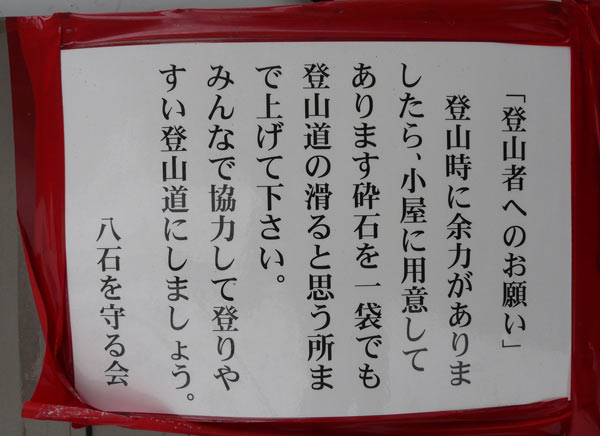 「登山者へのお願い」
登山時に余力がありま
したら、小屋に用意して
あります砕石を一袋でも
登山道の滑ると思う所ま
で上げて下さい。
みんなで協力して登りや
すい登山道にしましょう。
八石を守る会